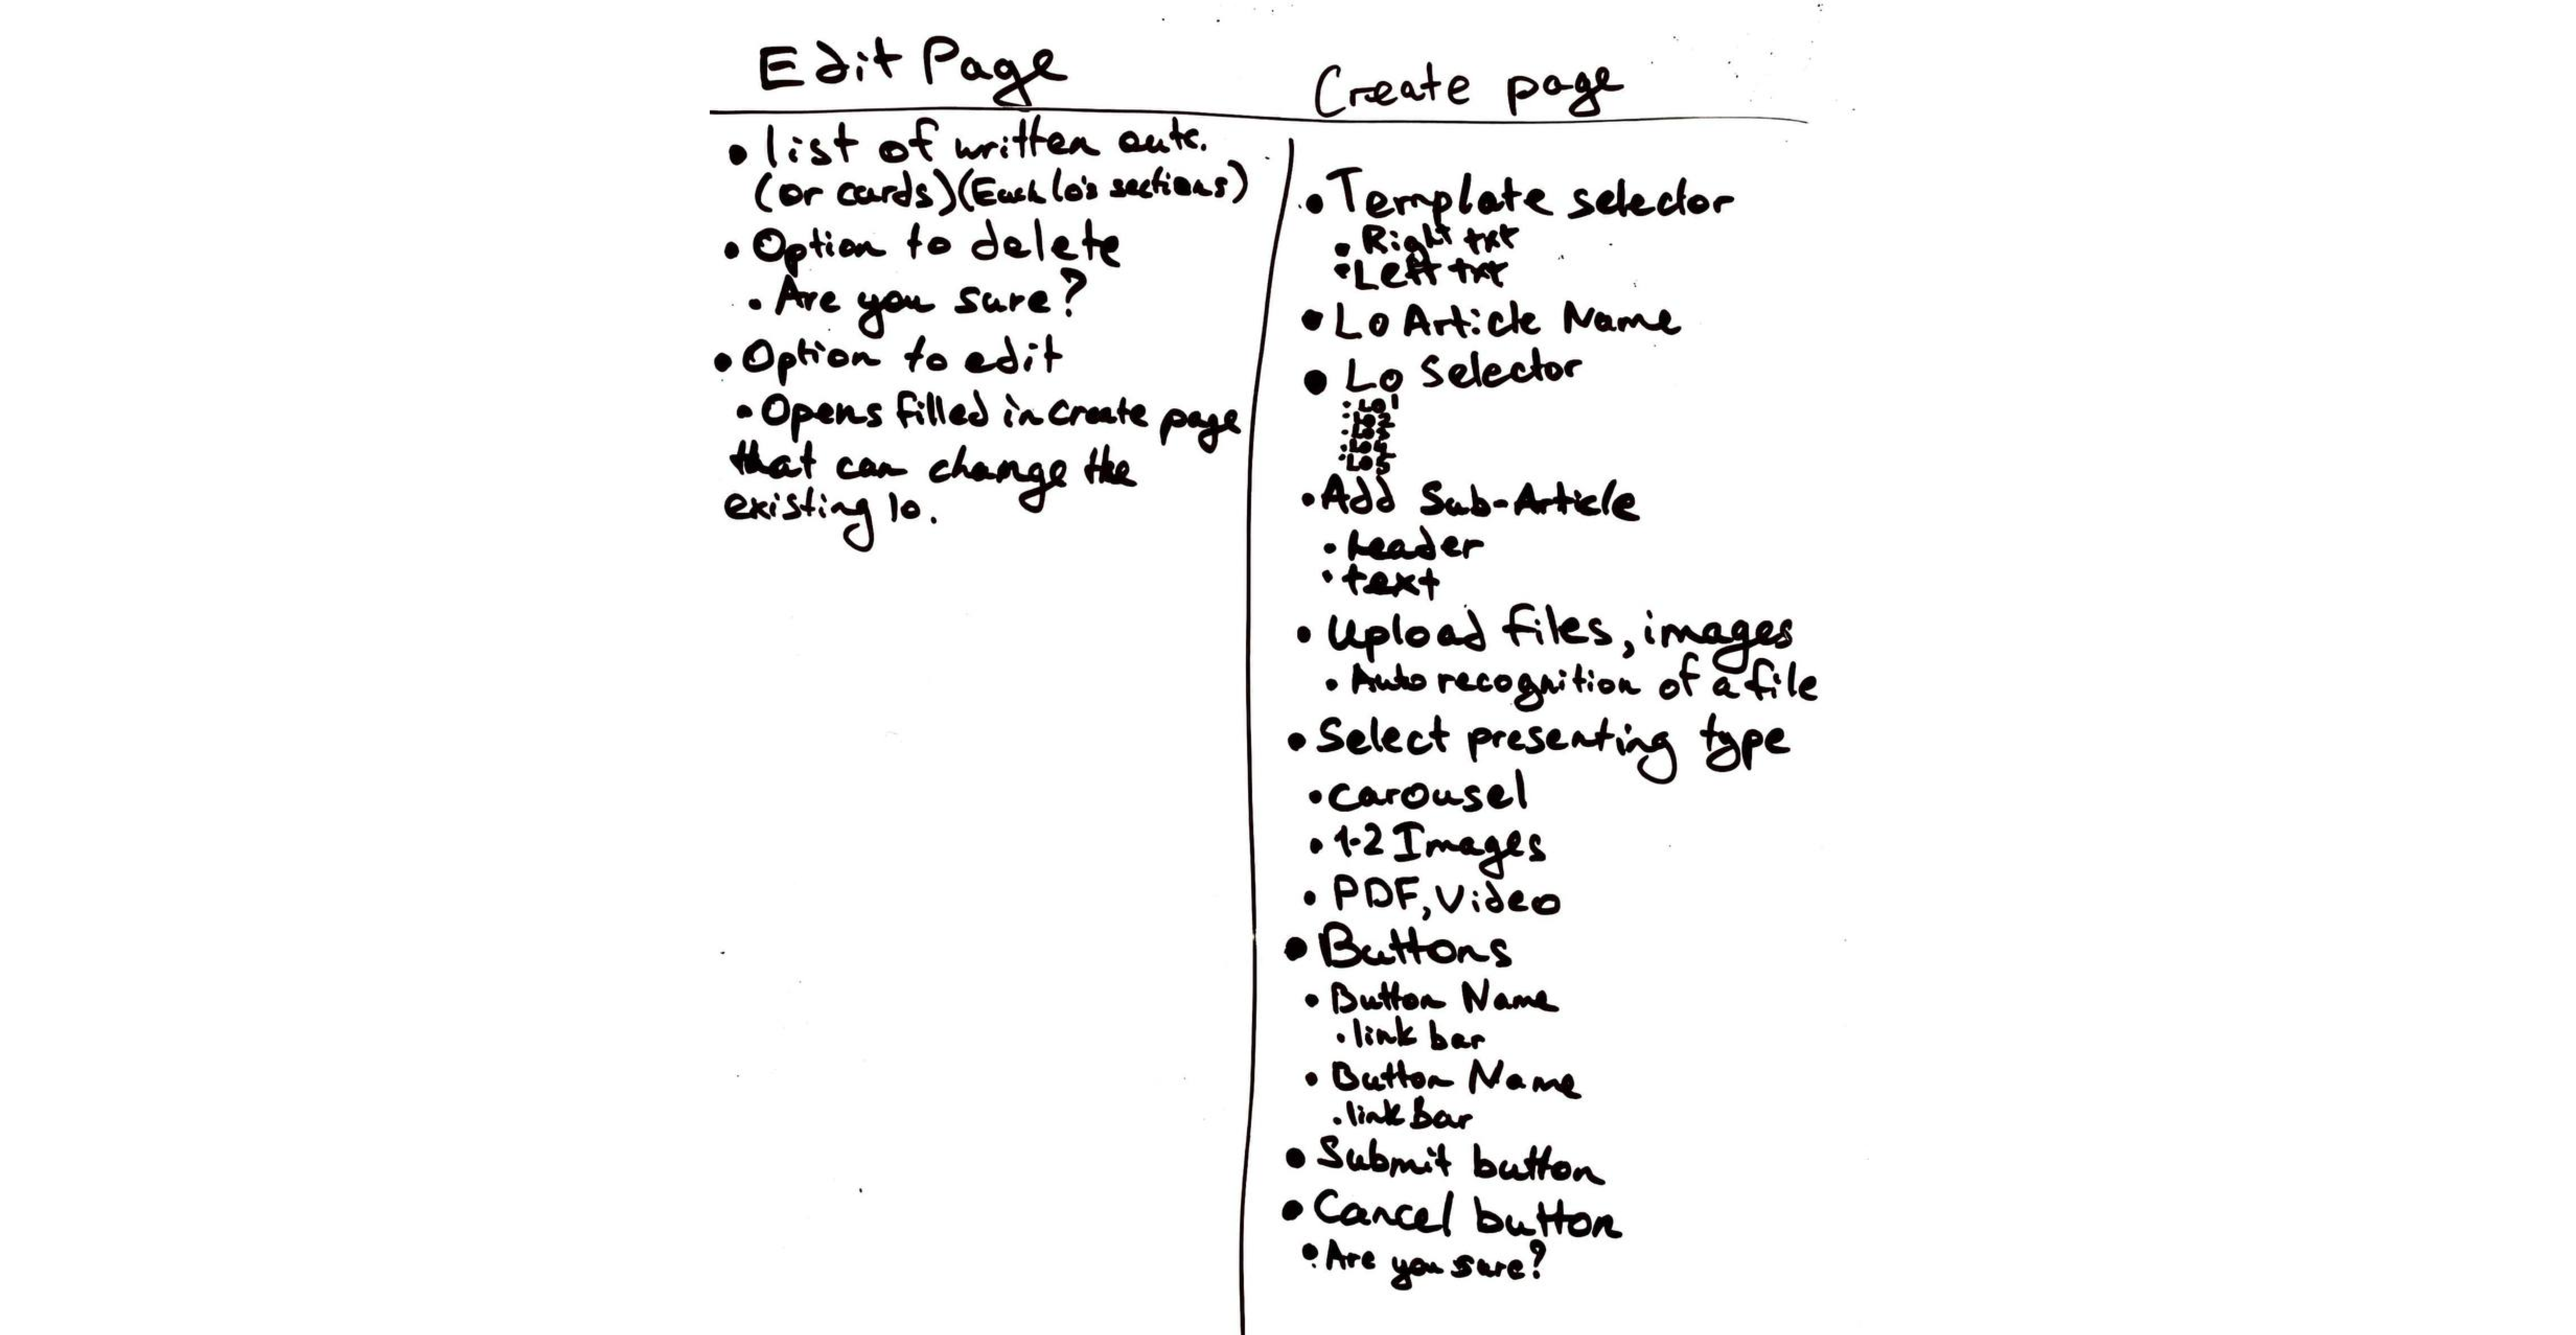 Edit Page
• list of written outc.
(or cards)(Each lo's sections)
• Option to delete
• Are you sure?
• Option to edit
• Opens filled in create page
that can change the
existing lo.
Create page
• Template selector
• Right txt
• Left txt
• Lo Article Name
• Lo Selector
• LO1
• LO2
• LO3
• LO4
• LO5
• Add Sub-Article
• header
• text
• Upload files, images
• Auto recognition of a file
• Select presenting type
• carousel
• 1-2 Images
• PDF, Video
• Buttons
• Button Name
• link bar
• Button Name
• link bar
• Submit button
• Cancel button
• Are you sure?